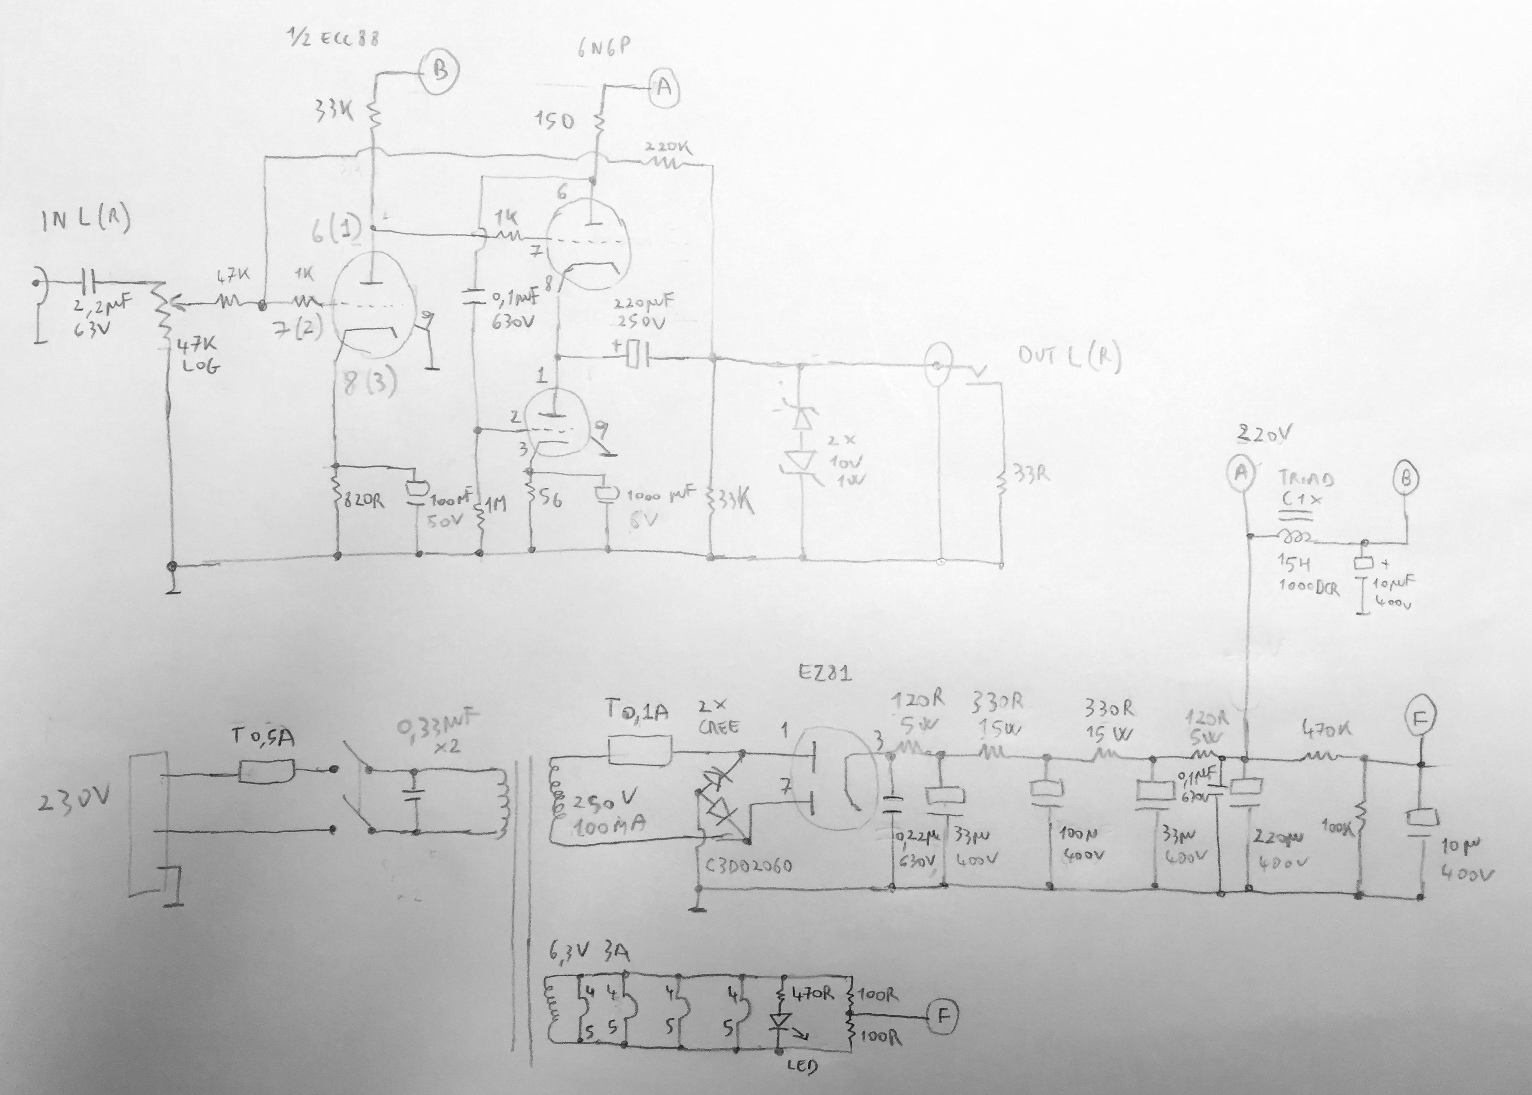 1/2 ECC88
6N6P
B
A
33K
150
220K
IN L(R)
6(1)
1K
6
7
47K
1K
8
2,2µF
63V
7(2)
9
0,1µF
630V
220µF
250V
+
47K
LOG
8(3)
1
OUT L(R)
2
3
9
2X
10V
1W
33R
820R
100µF
50V
1M
56
1000µF
33K
220V
A
TRIAD
C1X
B
15H
1000DCR
+
10µF
400V
EZ81
T0,5A
0,33µF
X2
T0,1A
2X
CREE
1
3
120R
5W
330R
15W
330R
15W
120R
5W
470K
F
230V
7
250V
100MA
C3D02060
0,22µ
630V
33µ
400V
100µ
400V
33µ
400V
0,1µF
630V
220µ
400V
100K
10µ
400V
6,3V 3A
4
4
4
4
470R
100R
5
5
5
5
100R
F
LED